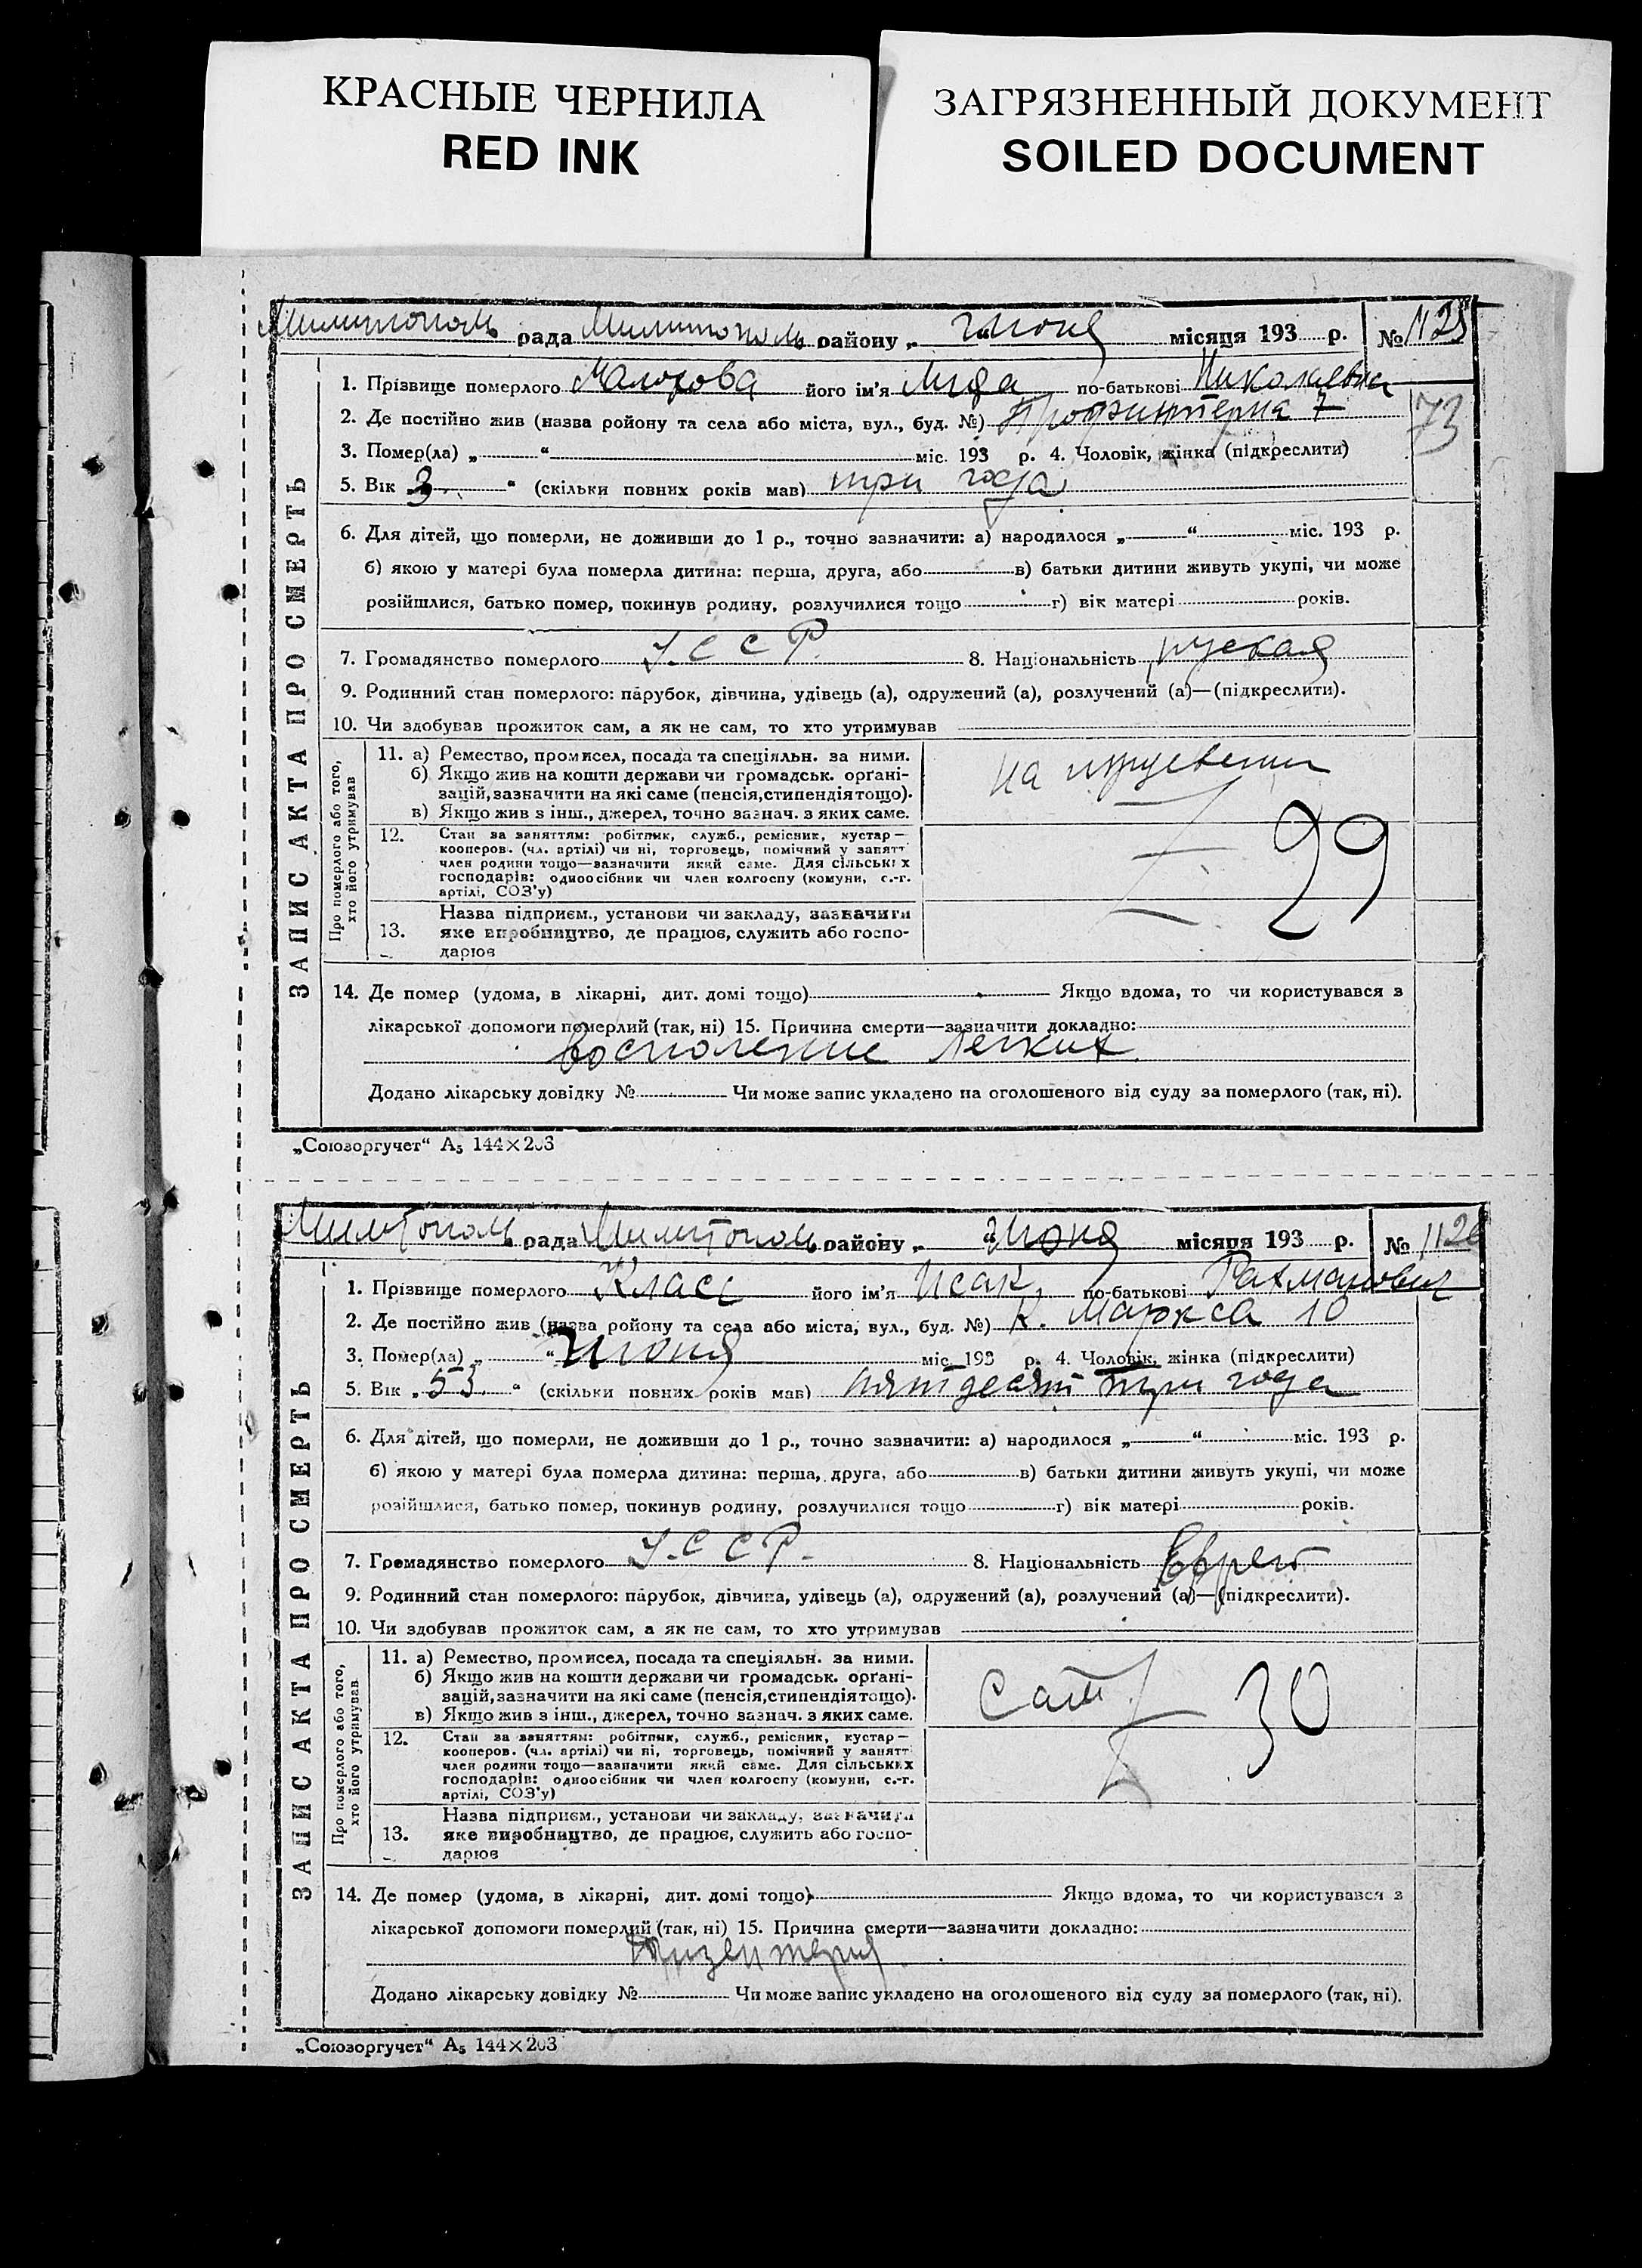 КРАСНЫЕ ЧЕРНИЛА
RED INK
ЗАГРЯЗНЕННЫЙ ДОКУМЕНТ
SOILED DOCUMENT
рада району „ “ июня місяця 193 р. № 1125
ЗАПИС АКТА ПРО СМЕРТЬ
73
1. Прізвище померлого його ім'я Лида по-батькові Николаевна
2. Де постійно жив (назва ройону та села або міста, вул., буд. №) Профинтерна 7
3. Помер(ла) „ “ міс. 193 р. 4. Чоловік, жінка (підкреслити)
5. Вік „3 “ (скільки повних років мав) три года
6. Для дітей, що померли, не доживши до 1 р., точно зазначити: а) народилося „ “ міс. 193 р.
б) якою у матері була померла дитина: перша, друга, або в) батьки дитини живуть укупі, чи може
розійшлися, батько помер, покинув родину, розлучилися тощо г) вік матері років.
7. Громадянство померлого У.С.С.Р. 8. Національність руская
9. Родинний стан померлого: парубок, дівчина, удівець (а), одружений (а), розлучений (а)—(підкреслити).
10. Чи здобував прожиток сам, а як не сам, то хто утримував
Про померлого або того, хто його утримував
11. а) Ремество, промисел, посада та спеціяльн. за ними.
б) Якщо жив на кошти держави чи громадськ. орґані-
зацій, зазначити на які саме (пенсія, стипендія тощо).
в) Якщо жив з інш., джерел, точно зазнач. з яких саме.
на иждевении
12. Стан за заняттям: робітник, служб., ремісник, кустар—
кооперов. (чл. артілі) чи ні, торговець, помічний у занятт
член родини тощо—зазначити який саме. Для сільських
господарів: одноосібник чи член колгоспу (комуни, с.-г.
артілі, СОЗ'у)
29
13. Назва підприєм., установи чи закладу, зазначити
яке виробництво, де працює, служить або госпо-
дарює
14. Де помер (удома, в лікарні, дит. домі тощо) Якщо вдома, то чи користувався з
лікарської допомоги померлий (так, ні) 15. Причина смерти—зазначити докладно:
Восполение легких
Додано лікарську довідку № Чи може запис укладено на оголошеного від суду за померлого (так, ні).
„Союзоргучет“ А₅ 144×203
рада району „ “ июня місяця 193 р. № 1126
ЗАПИС АКТА ПРО СМЕРТЬ
1. Прізвище померлого Класс його ім'я Исак по-батькові Рахманович
2. Де постійно жив (назва ройону та села або міста, вул., буд. №) К. Маркса 10
3. Помер(ла) „ “ июня міс. 193 р. 4. Чоловік, жінка (підкреслити)
5. Вік „53 “ (скільки повних років мав) пятдесят три года
6. Для дітей, що померли, не доживши до 1 р., точно зазначити: а) народилося „ “ міс. 193 р.
б) якою у матері була померла дитина: перша, друга, або в) батьки дитини живуть укупі, чи може
розійшлися, батько помер, покинув родину, розлучилися тощо г) вік матері років.
7. Громадянство померлого У.С.С.Р. 8. Національність Еврей
9. Родинний стан померлого: парубок, дівчина, удівець (а), одружений (а), розлучений (а)—(підкреслити).
10. Чи здобував прожиток сам, а як не сам, то хто утримував
Про померлого або того, хто його утримував
11. а) Ремество, промисел, посада та спеціяльн. за ними.
б) Якщо жив на кошти держави чи громадськ. орґані-
зацій, зазначити на які саме (пенсія, стипендія тощо).
в) Якщо жив з інш., джерел, точно зазнач. з яких саме.
Сам
30
12. Стан за заняттям: робітник, служб., ремісник, кустар—
кооперов. (чл. артілі) чи ні, торговець, помічний у занятт
член родини тощо—зазначити який саме. Для сільських
господарів: одноосібник чи член колгоспу (комуни, с.-г.
артілі, СОЗ'у)
13. Назва підприєм., установи чи закладу, зазначити
яке виробництво, де працює, служить або госпо-
дарює
14. Де помер (удома, в лікарні, дит. домі тощо) Якщо вдома, то чи користувався з
лікарської допомоги померлий (так, ні) 15. Причина смерти—зазначити докладно:
Дизентерия
Додано лікарську довідку № Чи може запис укладено на оголошеного від суду за померлого (так, ні).
„Союзоргучет“ А₅ 144×203